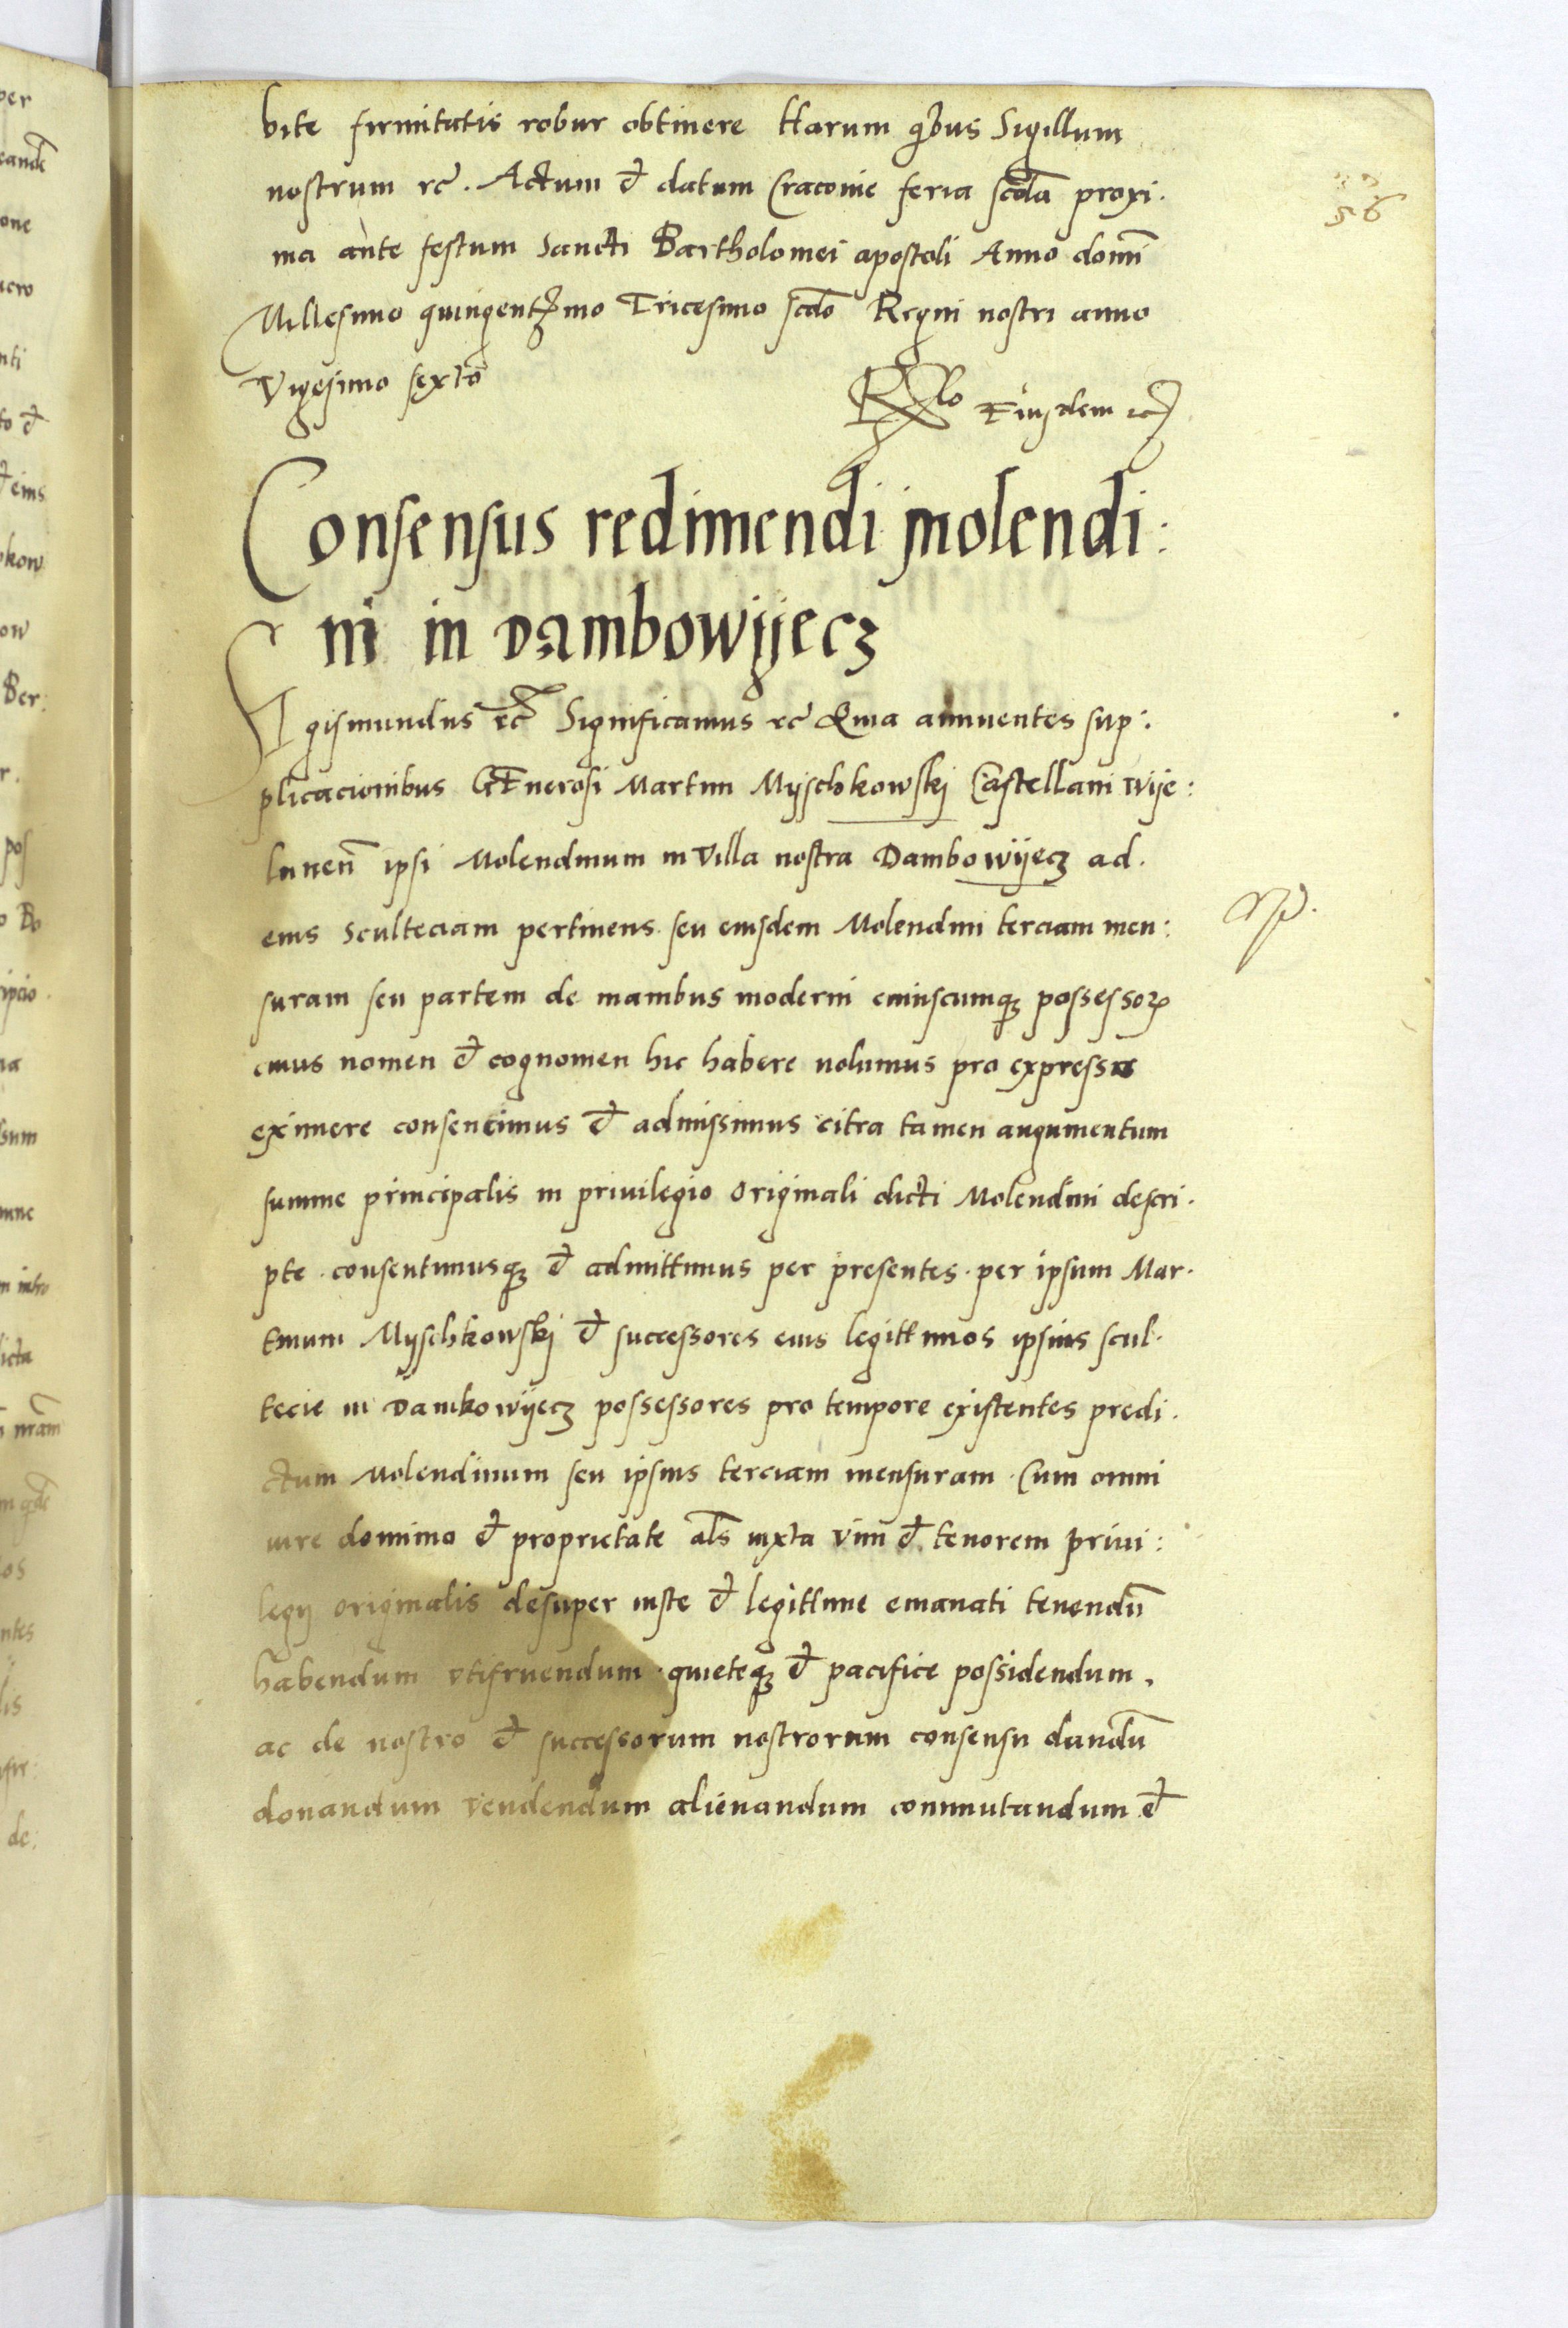 bite firmitatis robur obtinere Harum qbus Sigillum
nostrum rc. Actum et datum Cracovie feria scda proxi.
56
ma ante festum Sancti Bartholomei apostoli Anno domi
Millesimo quingentmo Tricesimo scdo Regni nostri anno
Vigesimo sexto
Rlo Eiusdem rc
Consensus redimendi molendi:
ni in Dambowyecz
Sigismundus rc Significamus rc Quia annuentes sup:
plicacionibus GEnerosi Martini Myschkowskj Castellani wije:
lunen ipsi Molendinum in Villa nostra Dambowyecz ad.
eius Sculteciam pertinens seu eiusdem Molendini terciam men:
suram seu partem de manibus moderni cuiuscumq possessor
cuius nomen et cognomen hic habere volumus pro expressis
eximere consencimus et admissimus citra tamen augumentum
summe principalis in privilegio Originali dicti Molendini descri.
pte. consentimusq et admittimus per presentes. per ipsum Mar.
tinum Myschkowskj et successores eius legittimos ipsius scul.
tecie in Dambowyecz possessores pro tempore existentes predi.
ctum Molendinum seu ipsius terciam mensuram Cum omni
iure dominio et proprietate als iuxta vim et tenorem privi:
legij originalis desuper iuste et legittime emanati tenendu
habendum utifruendum. quieteq et pacifice possidendum.
ac de nostro et successorum nostrorum consensu dandu
donandum vendendum alienandum commutandum et